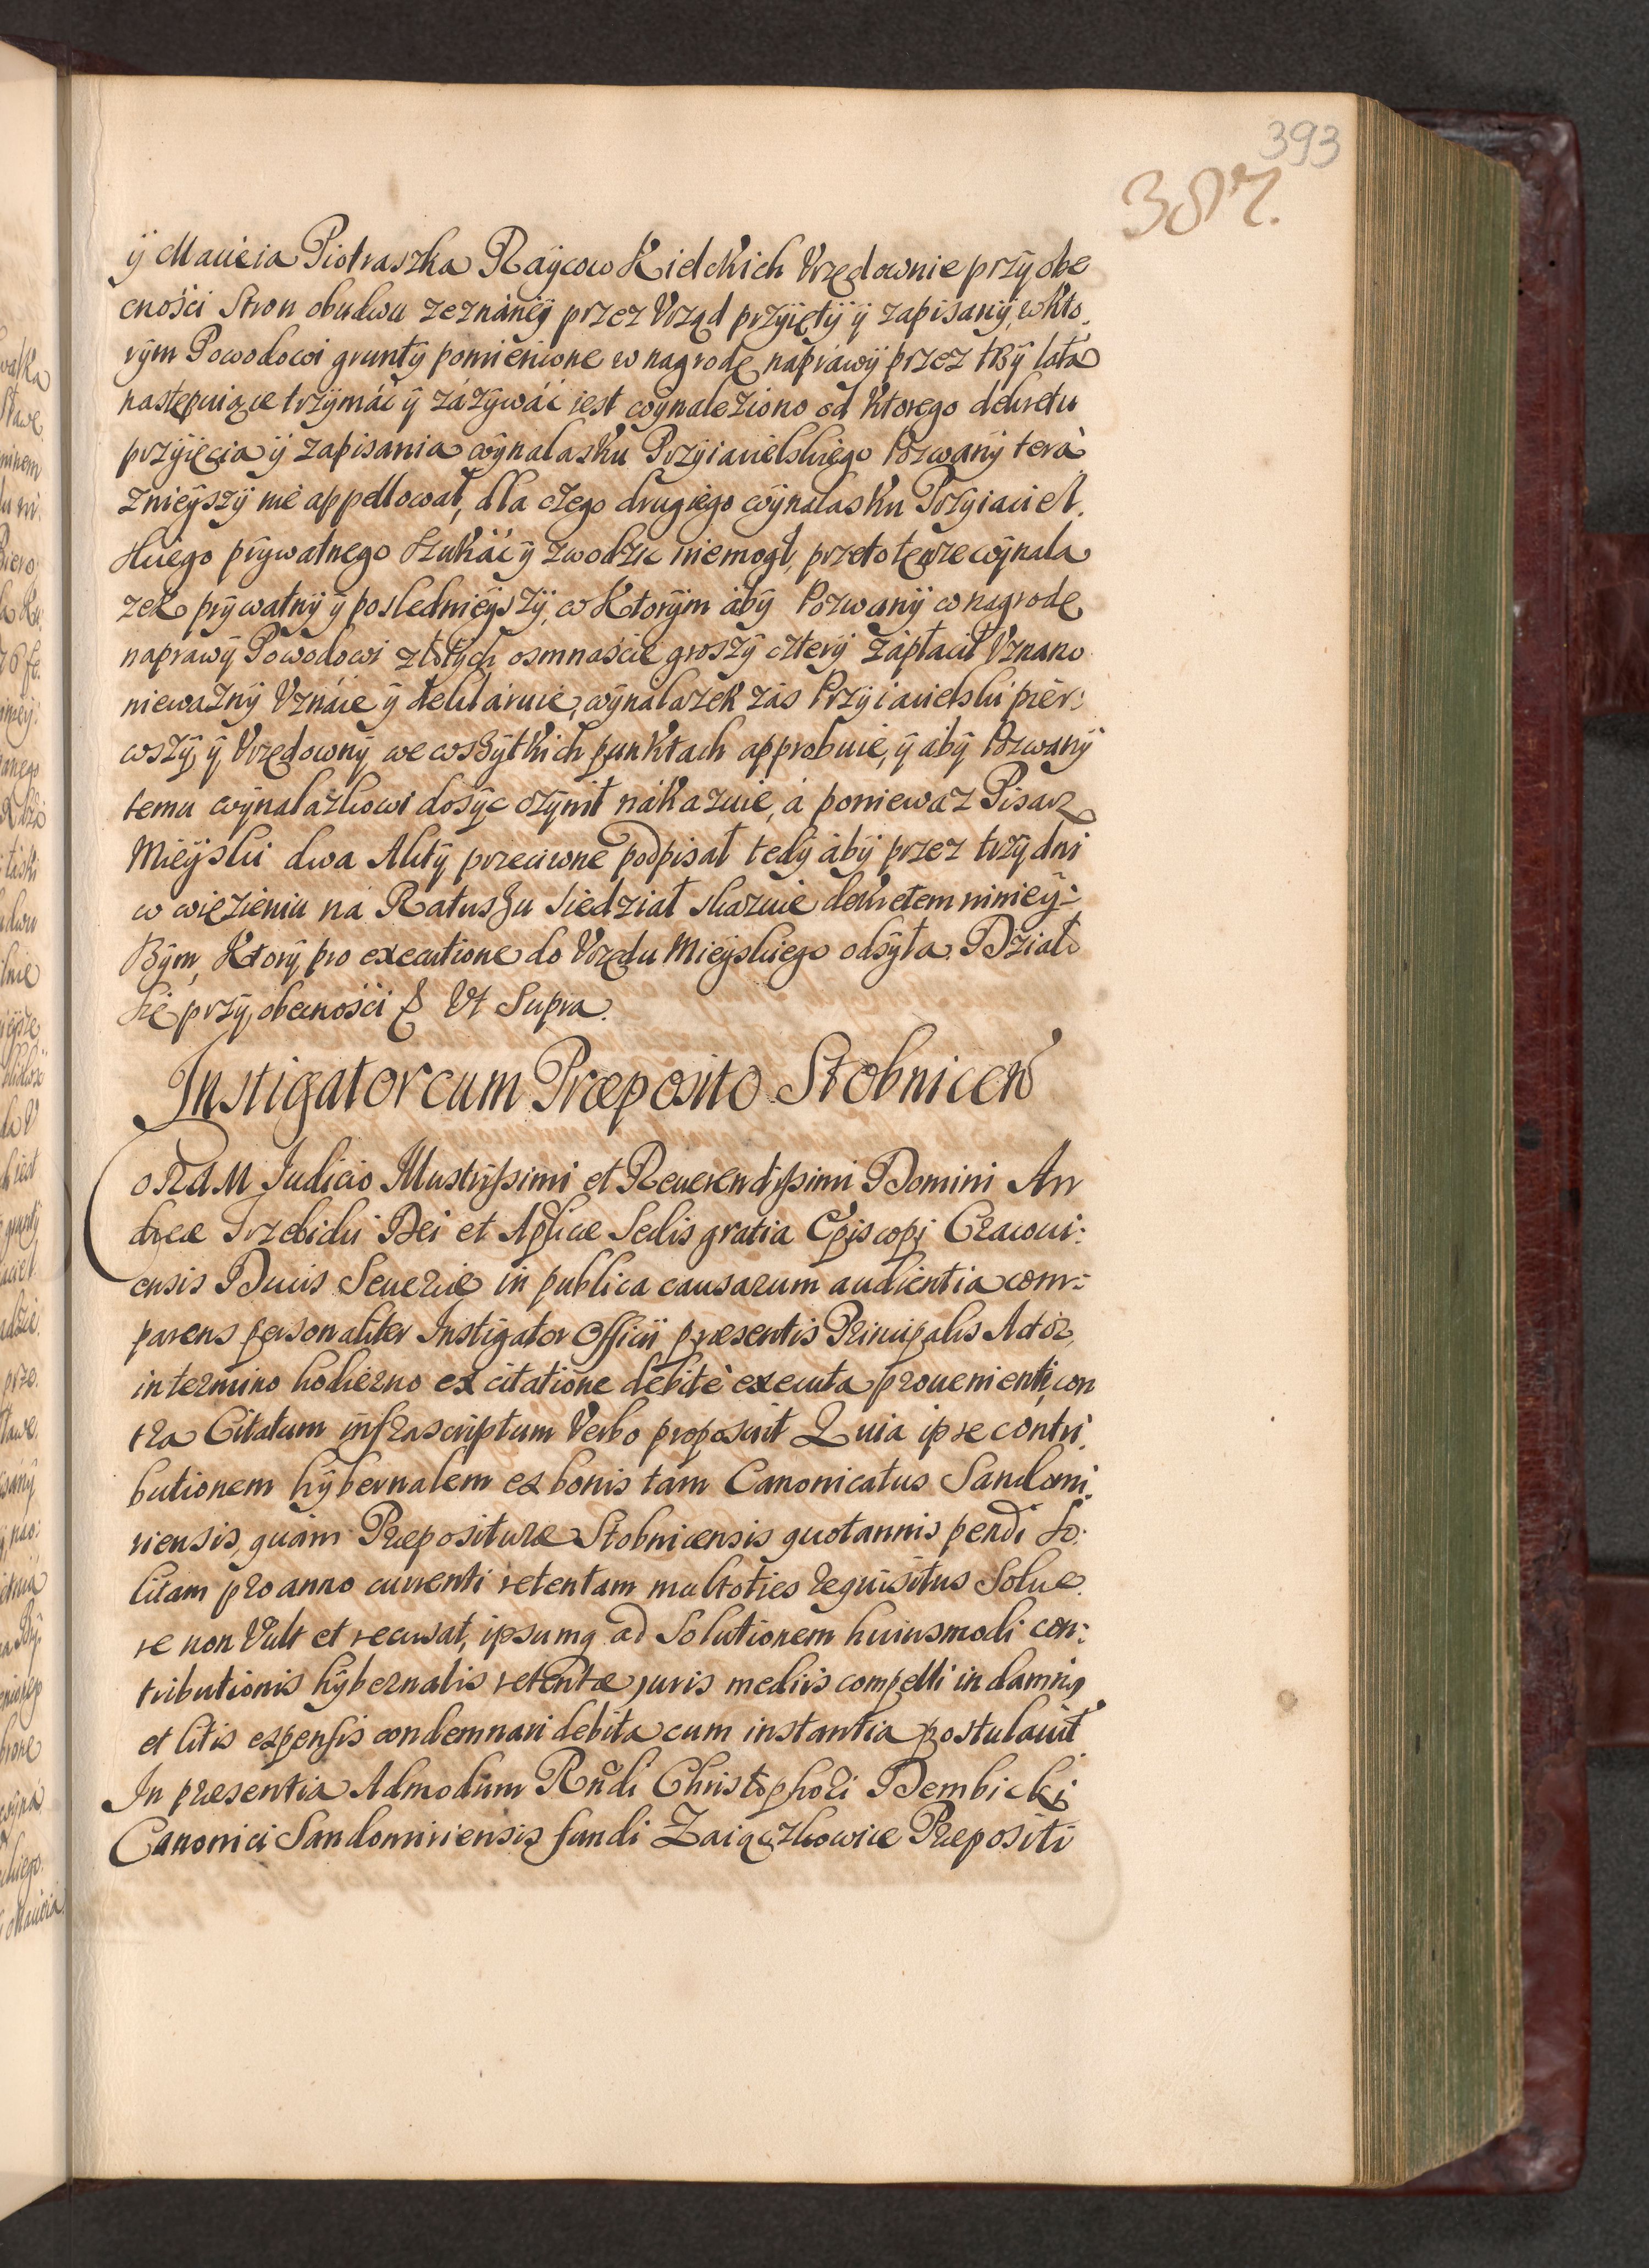 393
387.
ÿ Macieia Piotraszka Raÿcow Kielckich Vrzędownie przÿ obe
cności Stron obudwu zeznánÿ przez Vrząd przÿiętÿ ÿ zapisanÿ, w kto,
rÿm Powodowi gruntÿ pomienione w nagrodę naprawÿ przez trzÿ lata
następuiące trzÿmáć ÿ záżÿwáć iest wÿnaleziono od ktorego dekretu
przÿięcia ÿ zapisania wÿnalasku Przÿiacielskiego Pozwanÿ tera
znieÿszÿ nie appellował, dla czego drugiego wÿnalasku Przÿiaciel,
skiego prÿwatnego szukáć ÿ zwodzic niemogł, przeto tenze wÿnala
zek prÿwatnÿ ÿ posledniéÿszÿ, w ktorÿm abÿ Pozwanÿ w nagrodę
naprawÿ Powodowi złotÿch osmnaście groszÿ czterÿ zápłacił Vznano
nieważnÿ Vznáie ÿ deklaruie, wÿnalazek zás Przÿiacielski pier:
wszÿ, ÿ Vrzędownÿ we wszÿtkich punktach approbuie, ÿ abÿ Pozwanÿ
temu wÿnalazkowi dosÿc czÿnił nákazuie, á poniewaz Pisarz
Mieÿski dwa Aktÿ przeciwne podpisał tedÿ abÿ przez trzÿ dni
w więzieniu ná Ratuszu siedział skazuie dekretem ninieÿ:
szÿm, ktorÿ pro executione do Vrzędu Mieÿskiego odsÿła. Działo
się przÿ obecności & Vt Supra.
Instigator cum Præposito Stobnicen
CoRAM Judicio Illustrissimi et Reuerendissimi Domini An
dreæ Trzebicki Dei et Aplicæ Sedis gratia Episcopi Cracoui:
ensis Ducis Seueriæ in publica causarum audientia com:
parens personaliter Instigator Officii præsentis Principalis Actor,
in termino hodierno ex citatione debitè executa prouenienti, con
tra Citatum infrascriptum Verbo proposuit Quia ipse contri,
butionem hÿbernalem ex bonis tam Canonicatus Sandomi,
riensis, quàm Præpositure Stobnicensis quotannis pendi so:
litam pro anno currenti retentam multoties requisitus solue,
re non Vult et recusat, ipsumq ad solutionem huiusmodi con:
tributionis hÿbernalis retentæ juris mediis compelli in damnis
et litis expensis condemnari debita cum instantia postulauit
In præsentia Admodum Rndi Christophori Dembicki
Canonici Sandomiriensis fundi Zaiączkowice Præpositi